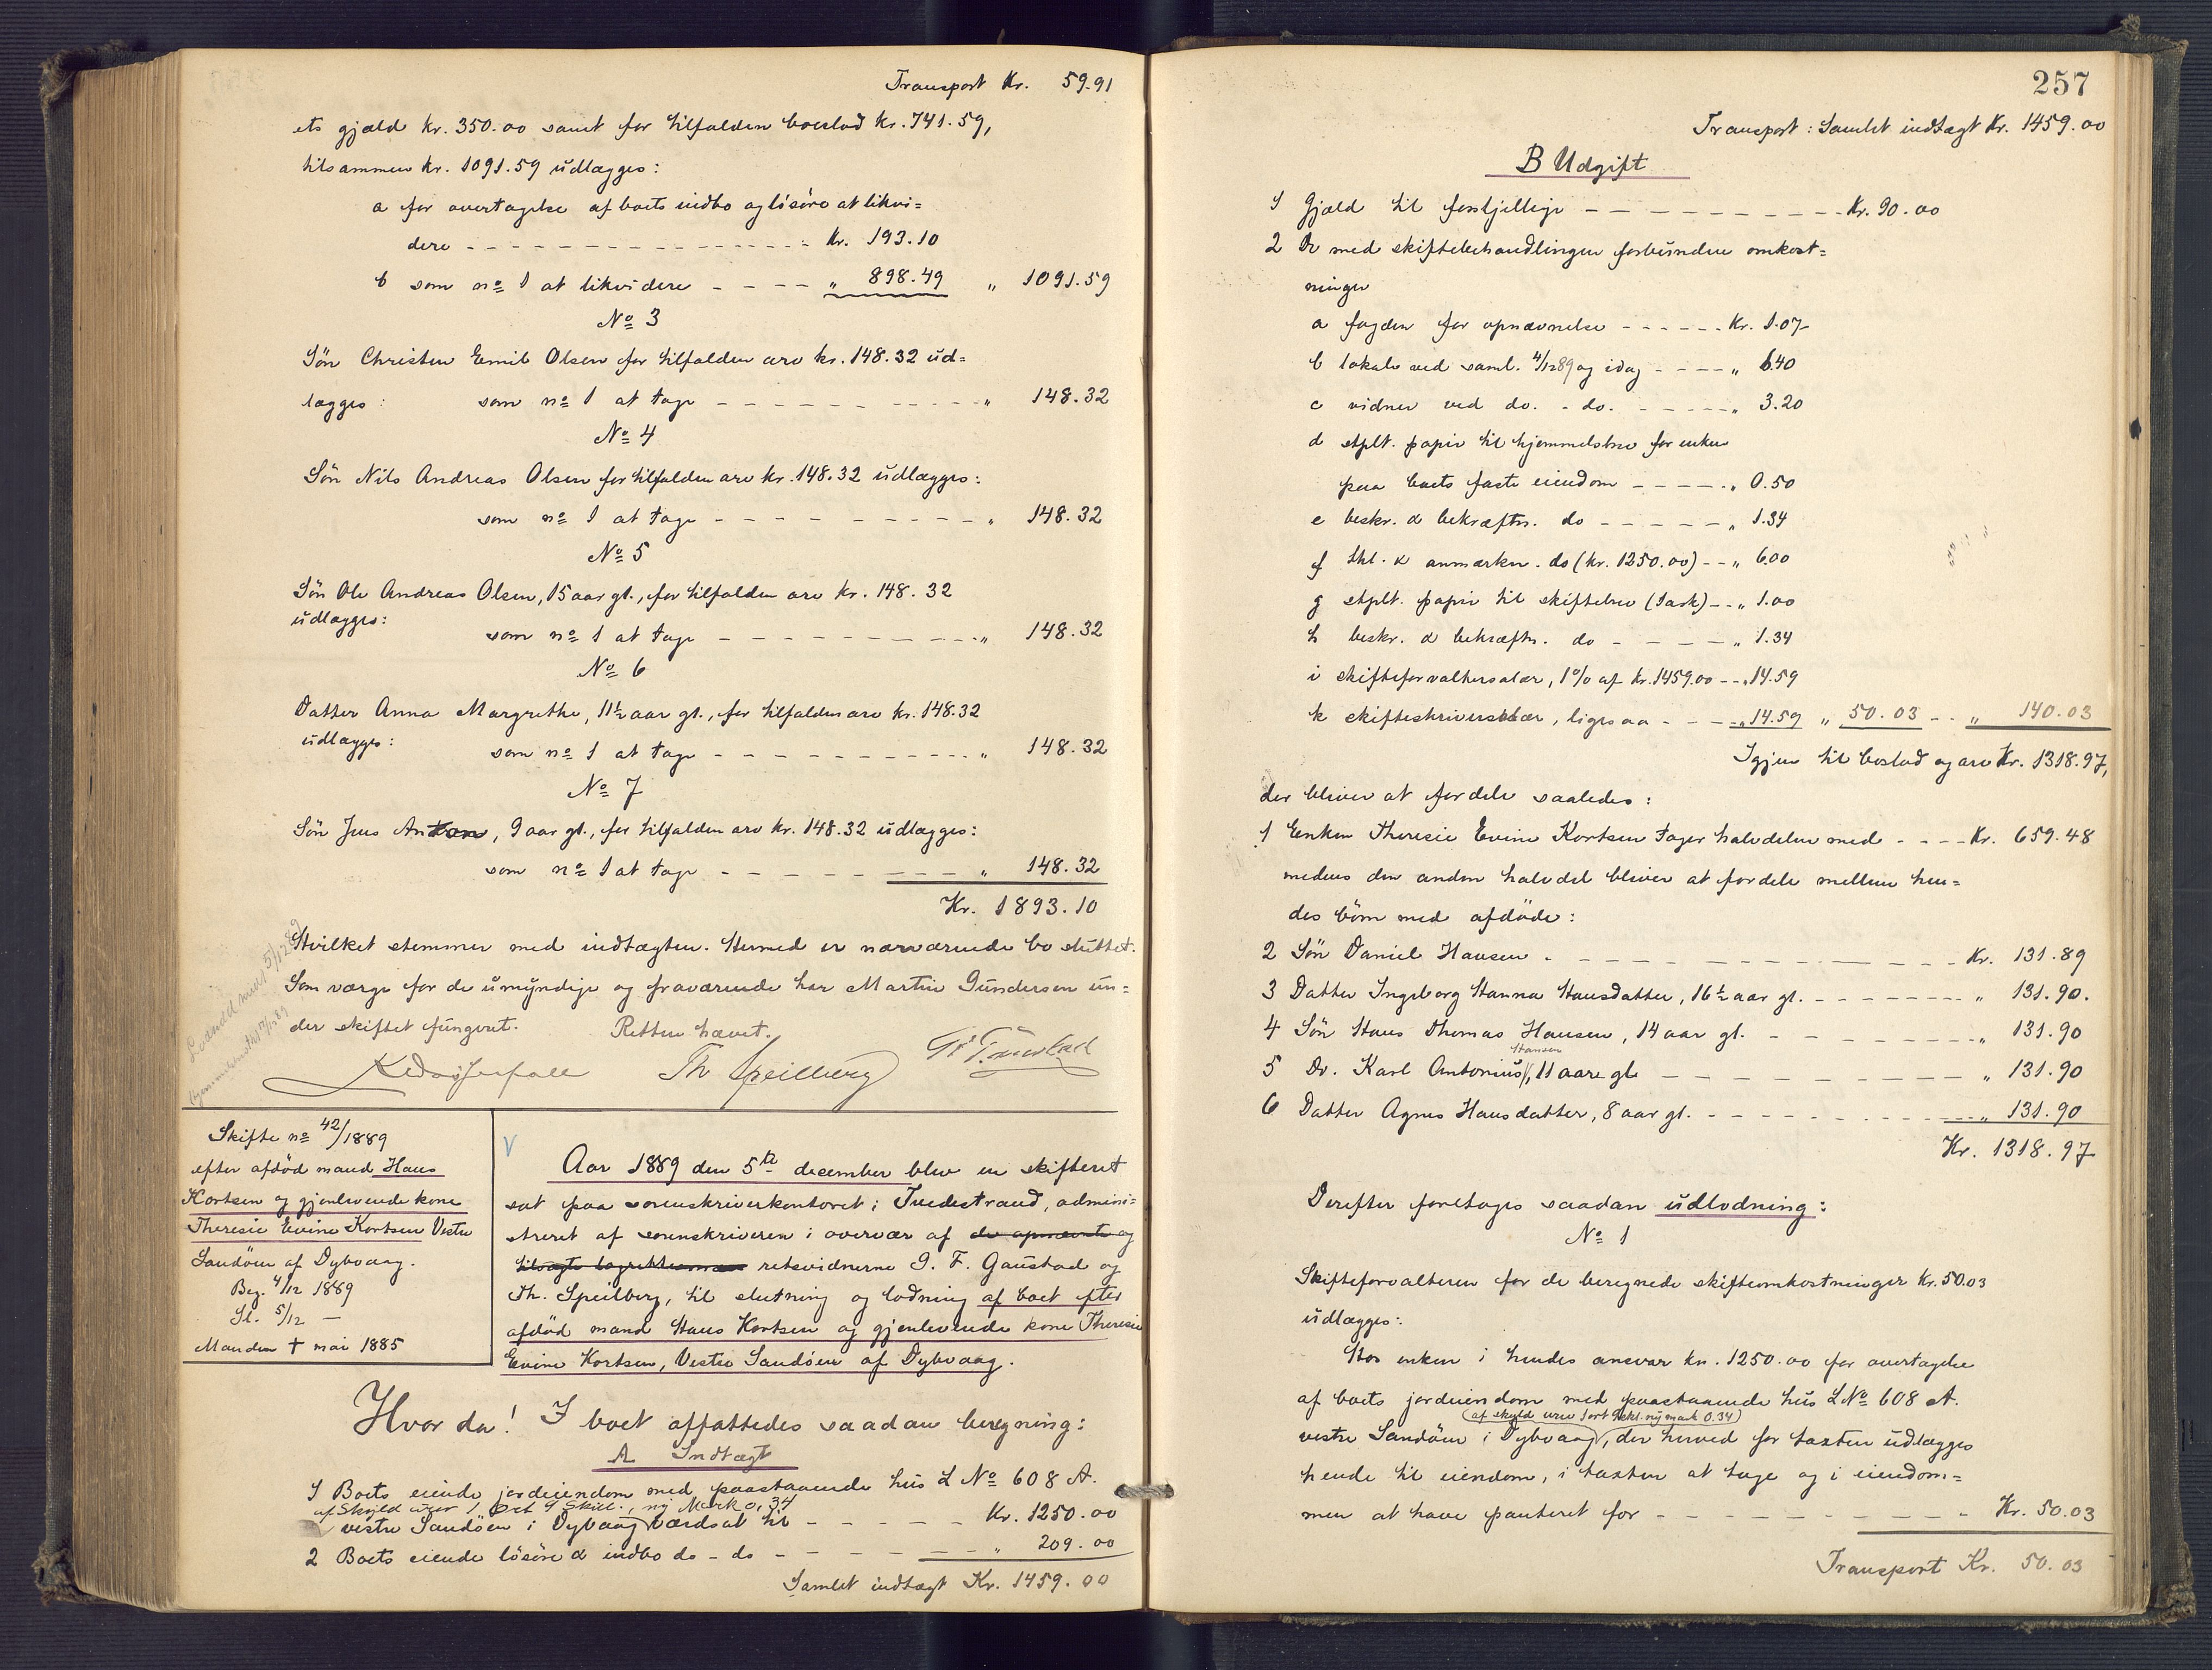 Transport Kr. 59.91
ets gjæld kr. 350.00 samt for tilfalden boeslod kr. 741.59,
tilsammen kr. 1091.59 udlægges:
a for overtagelse af boets indbo og lösöre at likvi=
dere - - - - Kr. 193.10
b som no 1 at likvidere - - - - " 898.49 " 1091.59
No 3
Sön Christen Emil Olsen for tilfalden arv kr. 148.32 ud=
lægges: som no 1 at tage - - - - " 148.32
No 4
Sön Nils Andreas Olsen for tilfalden arv kr. 148.32 udlægges:
som no 1 at tage - - - - " 148.32
No 5
Sön Ole Andreas Olsen, 15 aar gl., for tilfalden arv kr. 148.32
udlægges: som no 1 at tage - - - - " 148.32
No 6
Datter Anna Margrethe, 11½ aar gl., for tilfalden arv kr. 148.32
udlægges: som no 1 at tage - - - - " 148.32
No 7
Sön Jens Anton, 9 aar gl., for tilfalden arv kr. 148.32 udlægges:
som no 1 at tage - - - - " 148.32
Kr. 1893.10
Hvilket stemmer med indtægten. Hermed er nærværende bo sluttet.
Som værge for de umyndige og fraværende har Martin Gundersen un=
der skiftet fungeret. Retten hævet.
Th Speilberg
Skifte no 42/1889
efter afdöd mand Hans
Kortsen og gjenlevende kone
Theresie Evine Kortsen Vestre
Sandöen af Dybvaag.
Beg. 4/12 1889
Sl. 5/12 —
Manden † mai 1885
V
Aar 1889 den 5te december blev en skifteret
sat paa sorenskriverkontoret i Tvedestrand, admini=
streret af sorenskriveren i overvær af de opnævnte og
tilsagte lagrettesmænd retsvidnerne G. F. Gaustad og
Th. Speilberg, til slutning og lodning af boet efter
afdöd mand Hans Kortsen og gjenlevende kone Theresie
Evine Kortsen, Vestre Sandöen af Dybvaag.
Hvor da! I boet affattedes saadan beregning:
A Indtægt
1 Boets eiende jordeiendom med paastaaende hus L No 608 A.
af Skyld urev. 1 Ort 9 Skill., ny Mark 0,34
vestre Sandöen i Dybvaag værdsat til - - - - Kr. 1250.00
2 Boets eiende lösöre & indbo do - do - - - - " 209.00
Samlet indtægt Kr. 1459.00
257
Transport: Samlet indtægt Kr. 1459.00
B Udgift
1 Gjæld til forskjellige - - - - Kr. 90.00
2 De med skiftebehandlingen forbundne omkost=
ninger
a fogden for opnævnelse - - - - Kr. 1.07
b lokale ved saml. 4/12 89 og idag - - - - " 6.40
c vidner ved do. - do. - - - - " 3.20
d stplt. papir til hjemmelsbrev for enken
paa boets faste eiendom - - - - " 0.50
e beskr. & bekræftn. do - - - - " 1.34
f thl. & anmærkn. do (kr. 1250.00) - - " 6.00
g stplt. papir til skiftebrev (1 ark) - - " 1.00
h beskr. & bekræftn. do - - - - " 1.34
i skifteforvaltersalær, 1% af Kr. 1459.00 - - " 14.59
k skifteskriversalær, ligesaa - - - " 14.59 " 50.03 - - " 140.03
Igjen til boslod og arv Kr. 1318.97,
der bliver at fordele saaledes:
1 Enken Theresie Evine Kortsen tager halvdelen med - - - - Kr. 659.48
medens den anden halvdel bliver at fordele mellem hen=
des börn med afdöde:
2 Sön Daniel Hansen - - - - Kr. 131.89
3 Datter Ingeborg Hanna Hansdatter, 16½ aar gl. - - - - " 131.90.
4 Sön Hans Thomas Hansen, 14 aar gl. - - - - " 131.90
Hansen
5 Do. Karl Antonius, 11 aar gl - - - - " 131.90
6 Datter Agnes Hansdatter, 8 aar gl. - - - - " 131.90
Kr. 1318.97
Derefter foretoges saadan udlodning:
No 1
Skifteforvalteren for de beregnede skifteomkostninger Kr. 50.03
udlægges:
Hos enken i hendes ansvar kr. 1250.00 for overtagelse
af boets jordeiendom med paastaaende hus L No 608 A.
(af skyld urev 1 ort 9 skl. ny mark 0.34)
vestre Sandöen i Dybvaag, der herved for taxten udlægges
hende til eiendom, i taxten at tage og i eiendom=
men at have panteret for - - - - Kr. 50.03
Transport Kr. 50.03